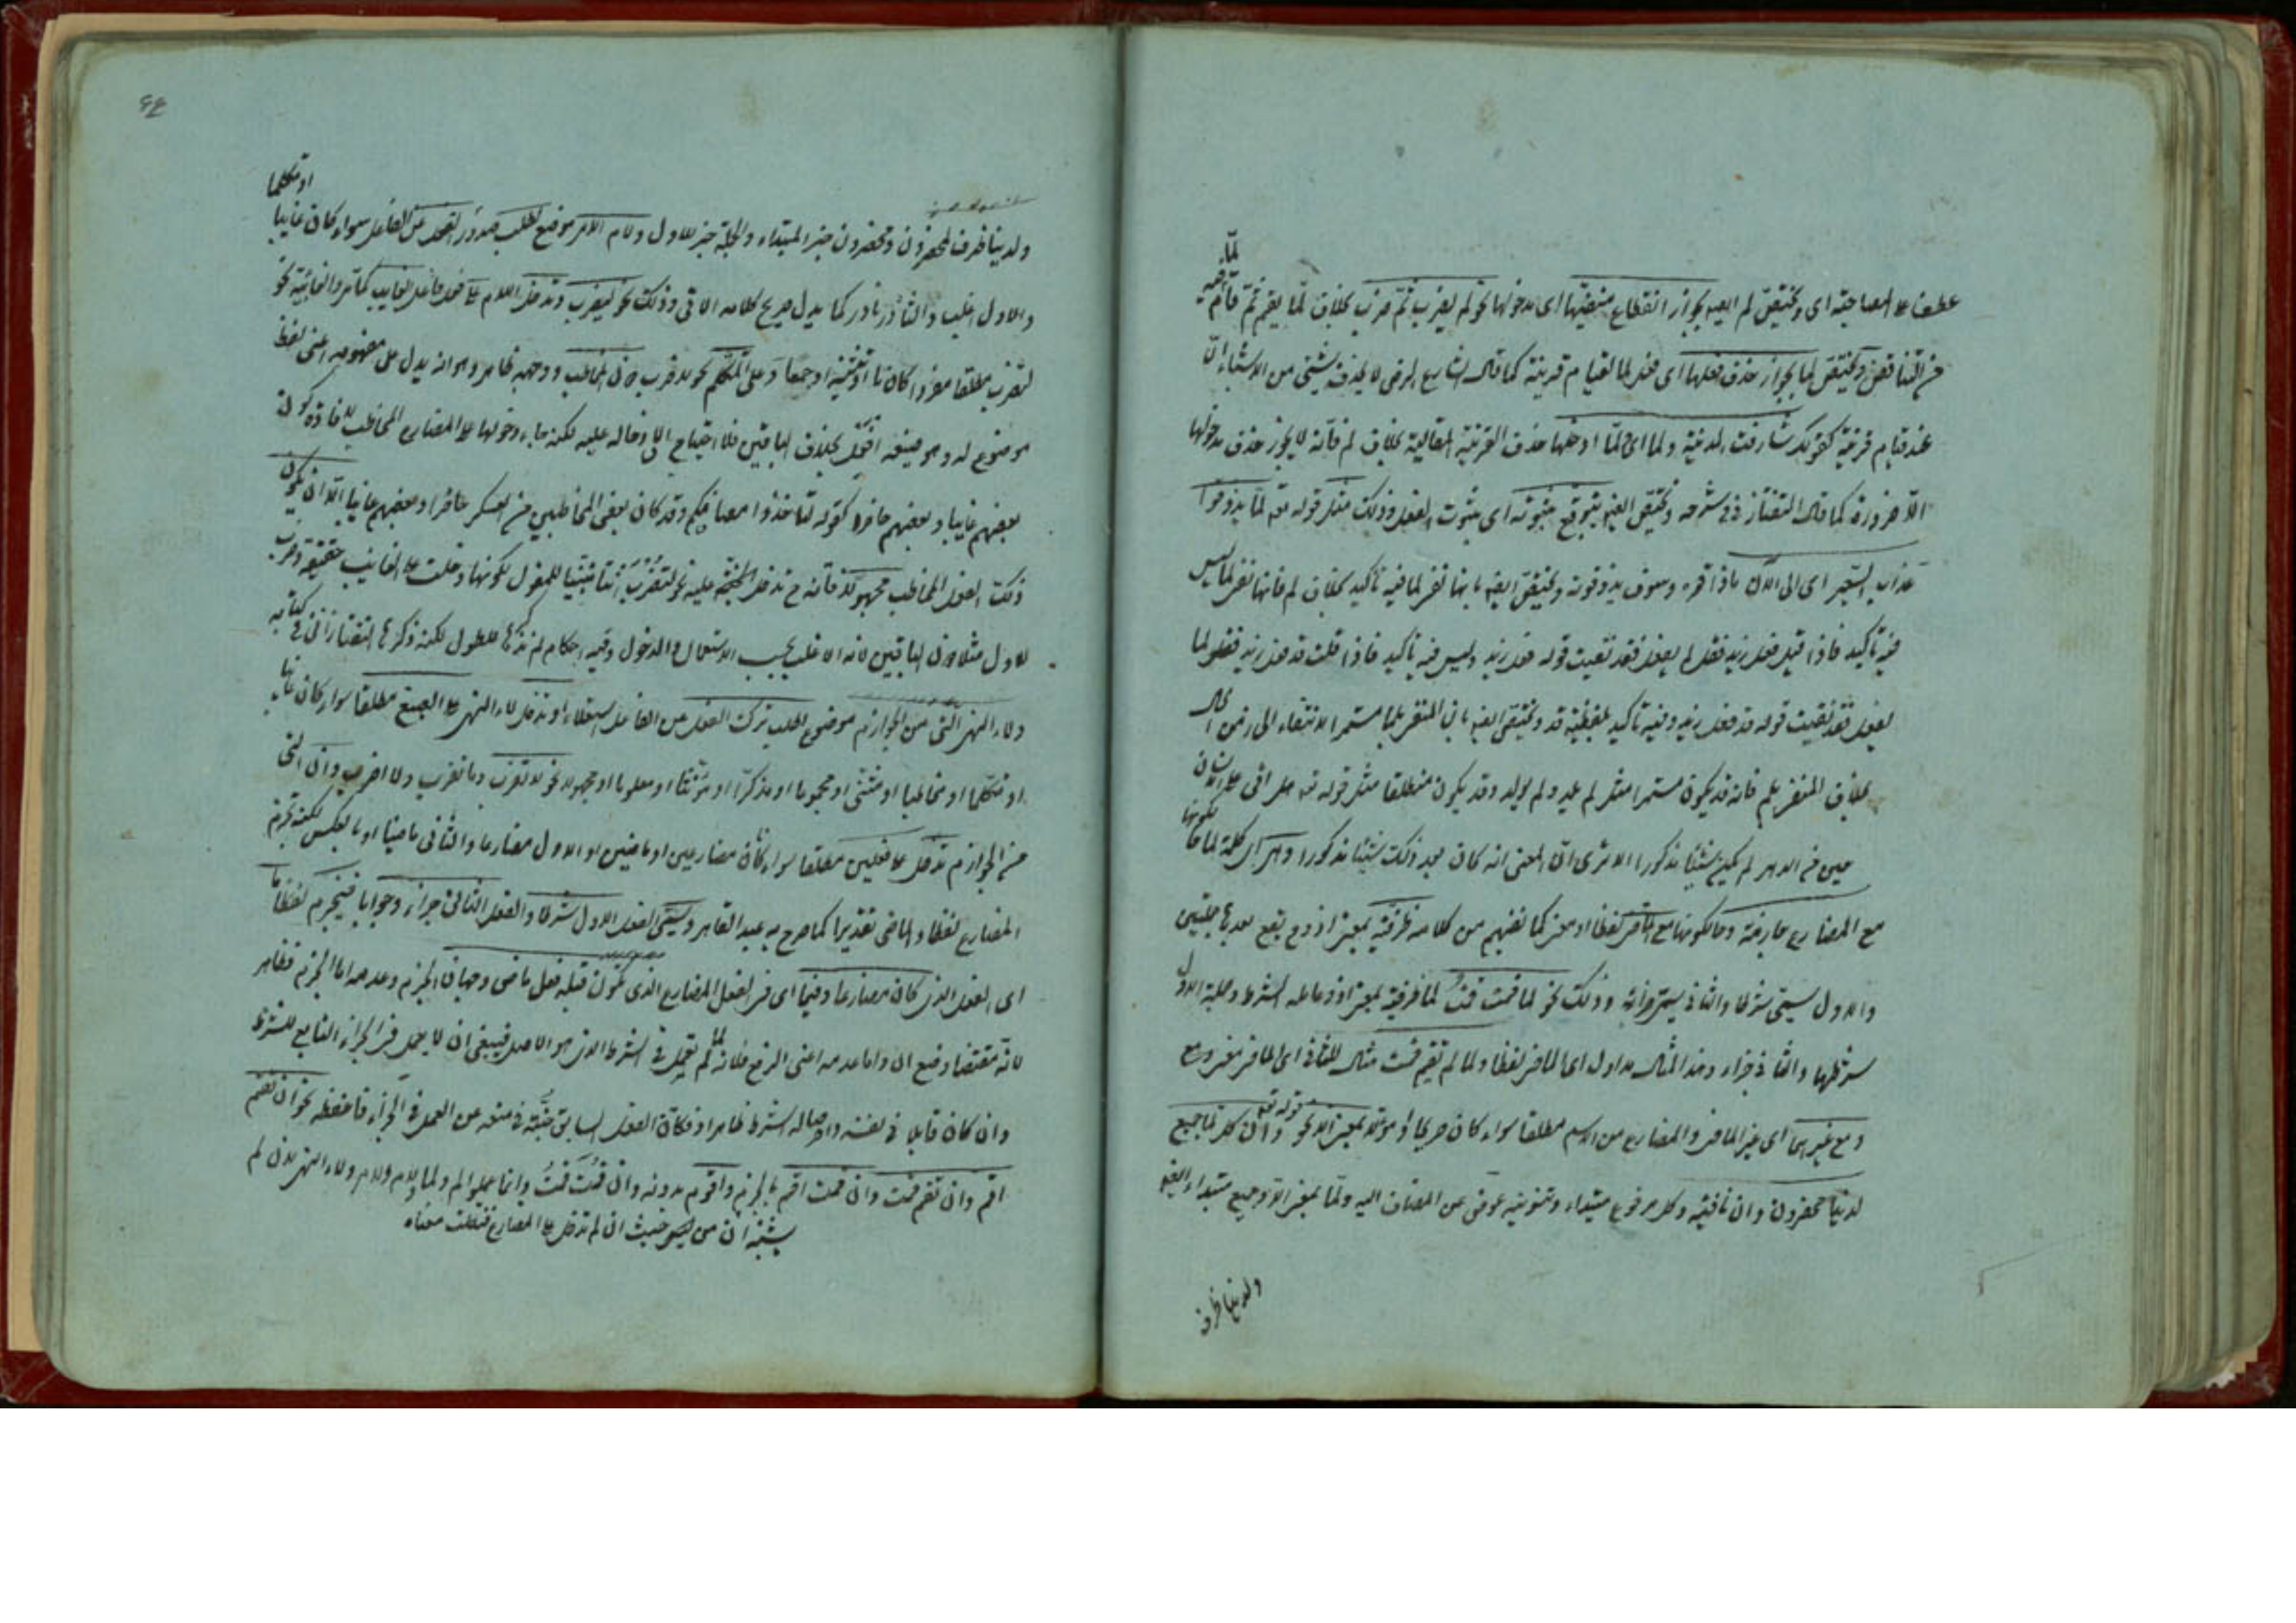 عطف على المصاحبة اى وتختص لم ايضا بجواز انقطاع منفيها اى مدخولها نحو لم يضرب ثم ضرب بخلاف لما يقم ثم قام
من التناقض وتختص لما بجواز حذف فعلها اى فعل لما لقيام قرينة كما قال الشارع الرضى لا يحذف شئ من الاشياء الا
عند قيام قرينة كقولك شارفت المدينة ولما اى لما ادخلها حذف القرينة المقالية بخلاف لم فانه لا يجوز حذف مدخولها
الا ضرورة كما قال التفتازانى فى شرحه وتختص ايضا بتوقع ثبوته اى ثبوت الفعل وذلك مثل قوله تعالى لما يذوقوا
عذاب السعير اى الى الآن ما ذاقوه وسوف يذوقونه وتختص ايضا بانها نفى لما فيه تأكيد بخلاف لم فانها نفى لما ليس
فيه تأكيد فاذا قيل فعل زيد فقل لم يفعل فقد نفيت قوله فعل زيد وليس فيه تأكيد فاذا قلت قد فعل زيد فقل لما
يفعل فقد نفيت قوله قد فعل زيد وفيه تأكيد بلفظة قد وتختص ايضا بان المنفى بلما مستمر الانتفاء الى زمن الحال
بخلاف المنفى بلم فانه قد يكون مستمرا مثل لم يلد ولم يولد وقد يكون منطلقا مثل قوله تعالى هل اتى على الانسان
حين من الدهر لم يكن شيئا مذكورا الا ترى ان المعنى انه كان بعد ذلك شيئا مذكورا وهى اى كلمة لما حال كونها
مع المضارع جازمة وحالكونها مع الماضى لفظا او معنى كما تفهم من كلامه ظرفية بمعنى اذ وح يقع بعدها جملتين
والاول يسمى شرطا والثانى يسمى جزاء وذلك نحو لما قمت قمت لما ظرفية بمعنى اذ وعامله الشرط وجملة الاول
شرطها والثانى جزاء وهذا المثال مدا ول اى الماضى لفظا ولما لم تقم قمت مثال للثانى اى الماضى معنى ومع
ومع غيرهما اى غير الماضى والمضارع من الاسم مطلقا سواء كان صريحا او مؤولا بمعنى الا نحو قوله تعالى وان كل لما جميع
لدينا محضرون وان نافية وكل مرفوع مبتداء وتنوينه عوض عن المضاف اليه ولما بمعنى الا وجميع مبتداء ايضا
ولدينا ظرف
ولدينا ظرف لمحضرون ومحضرون خبر المبتداء والجملة خبر للاول ولام الامر موضع لطلب صدور الفعل عن الفاعل سواء كان غايبا او متكلما
والاول اغلب والثانى نادر كما يدل صريح كلامه الاتى وذلك نحو ليضرب وتدخل اللام على فعل فاعل الغايب كما مر والغائبة نحو
لتضرب مطلقا مفردا كانتا او تثنية او جمعا وعلى المتكلم نحو لاضرب دون المخاطب ووجهه ظاهر وهو انه يدل على مفهومه اعنى لفظ
موضوع له وهو صيغة افعل بخلاف الباقين فلا احتياج الى ادخاله عليه لكنه جاء دخولها على المضارع المخاطب لافادة كون
بعضهم غايبا وبعضهم حاضرا كقوله لتأخذوا مصافكم وقد كان بعض المخاطبين من العسكر حاضرا وبعضهم غايبا الا ان يكون
ذلك الفعل المخاطب مجهولا فانه ح تدخل عليه نحو لتضرب انت مبنيا للمفعول لكونها دخلت على الغايب حقيقة وضرب
الاول مثلا دون الباقيين لانه الاغلب بحسب الاستعمال والدخول وفيه احكام لم نذكرها للطول لكنه ذكرها التفتازانى فى كتابه
ولاء النهى التى من الجوازم موضوع لطلب ترك الفعل من الفاعل استعلاء او تدخل لاء النهى على الجميع مطلقا سواء كان غايبا
او متكلما او مخاطبا او مثنى او مجموعا او مذكرا او مؤنثا او معلوما او مجهولا نحو لا تضرب ولا نضرب ولا اضرب وان التى
من الجوازم تدخل على فعلين مطلقا سواء كان مضارعين او ماضيين او الاول مضارعا والثانى ماضيا او بالعكس لكنه تجزم
المضارع لفظا والماضى تقديرا كما صرح به عبد القاهر ويسمى الفعل الاول شرطا والفعل الثانى جزاء وجوابا فينجزم لفظا
اى الفعل الذى كان مضارعا وفيما اى فى الفعل المضارع الذى يكون قبله فعل ماضى وجهان الجزم وعدمه اما الجزم فظاهر
لانه مقتضا وضع ان واما عدمه اعنى الرفع فلانه لما لم تعمل فى الشرط الذى هو الاصل فينبغى ان لا يعمل فى الجزاء التابع للشرط
وان كان قابلا فى نفسه واصالة الشرط ظاهرا وفكان الفعل السابق جنة فى منعه عن العمل فى الجزاء فاحفظه نحو ان تقم
اقم وان تقم قمت وان قمت اقم بالجزم واقوم بدونه وان قمت قمت وانما عملوا لم ولما ولام ولاء النهى لان لم
يشبه ان من حيث ان لم تدخل على المضارع فنقلت معناه